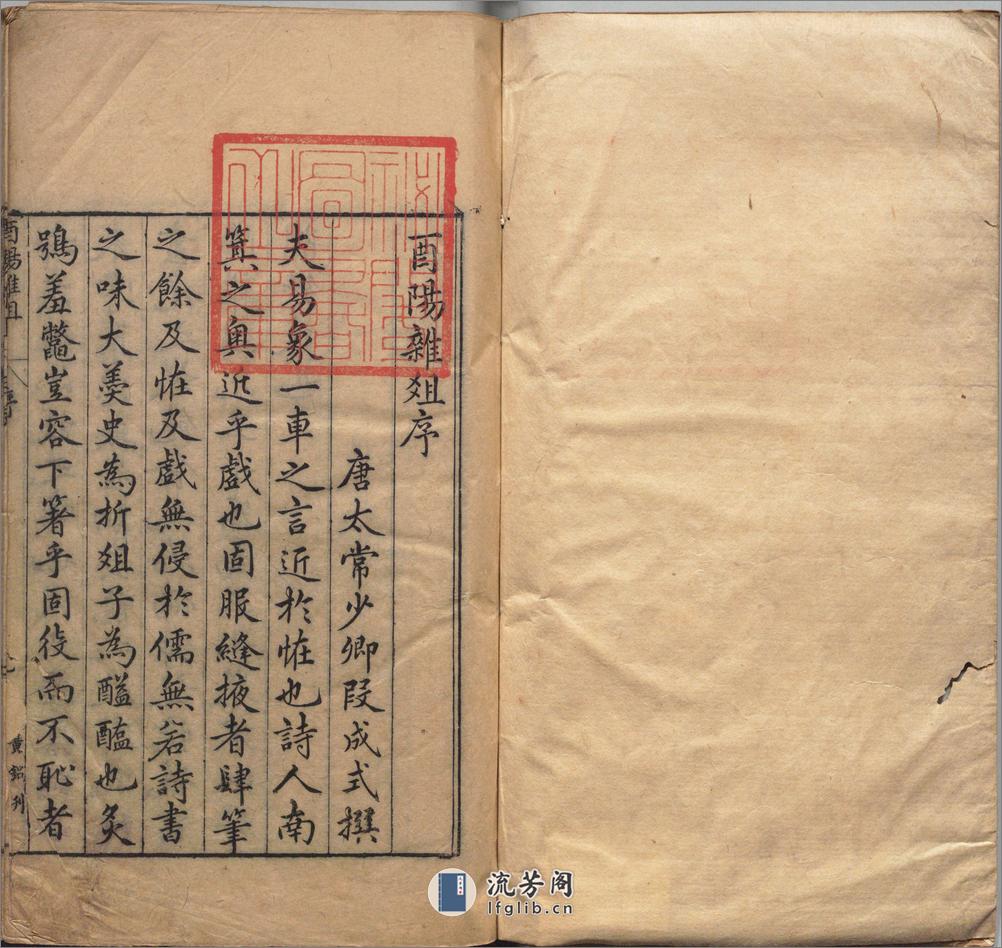 酉陽雜爼序
唐太常少卿段成式撰
夫易象一車之言近於恠也詩人南
箕之奥近乎戲也固服縫掖者肆筆
之餘及恠及戲無侵於儒無若詩書
之味大羮史為折爼子為醯醢也炙
鴞羞鼈豈容下箸乎固役而不恥者
酉陽雜爼
序
黄銘刋
流芳阁
lfglib.cn